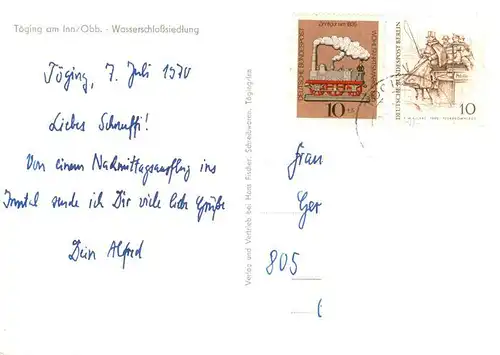 Töging am Inn/Obb. - Wasserschloßsiedlung
Töging, 7. Juli 1970
Liebes Schnuffi!
Von einem Nachmittagsausflug ins
Inntal sende ich Dir viele liebe Grüße
Dein Alfred
Verlag und Vertrieb bei Hans Fischer, Schreibwaren, Töging/Inn
DEUTSCHE BUNDESPOST
10
DEUTSCHE BUNDESPOST BERLIN
10
Frau
Ger
805